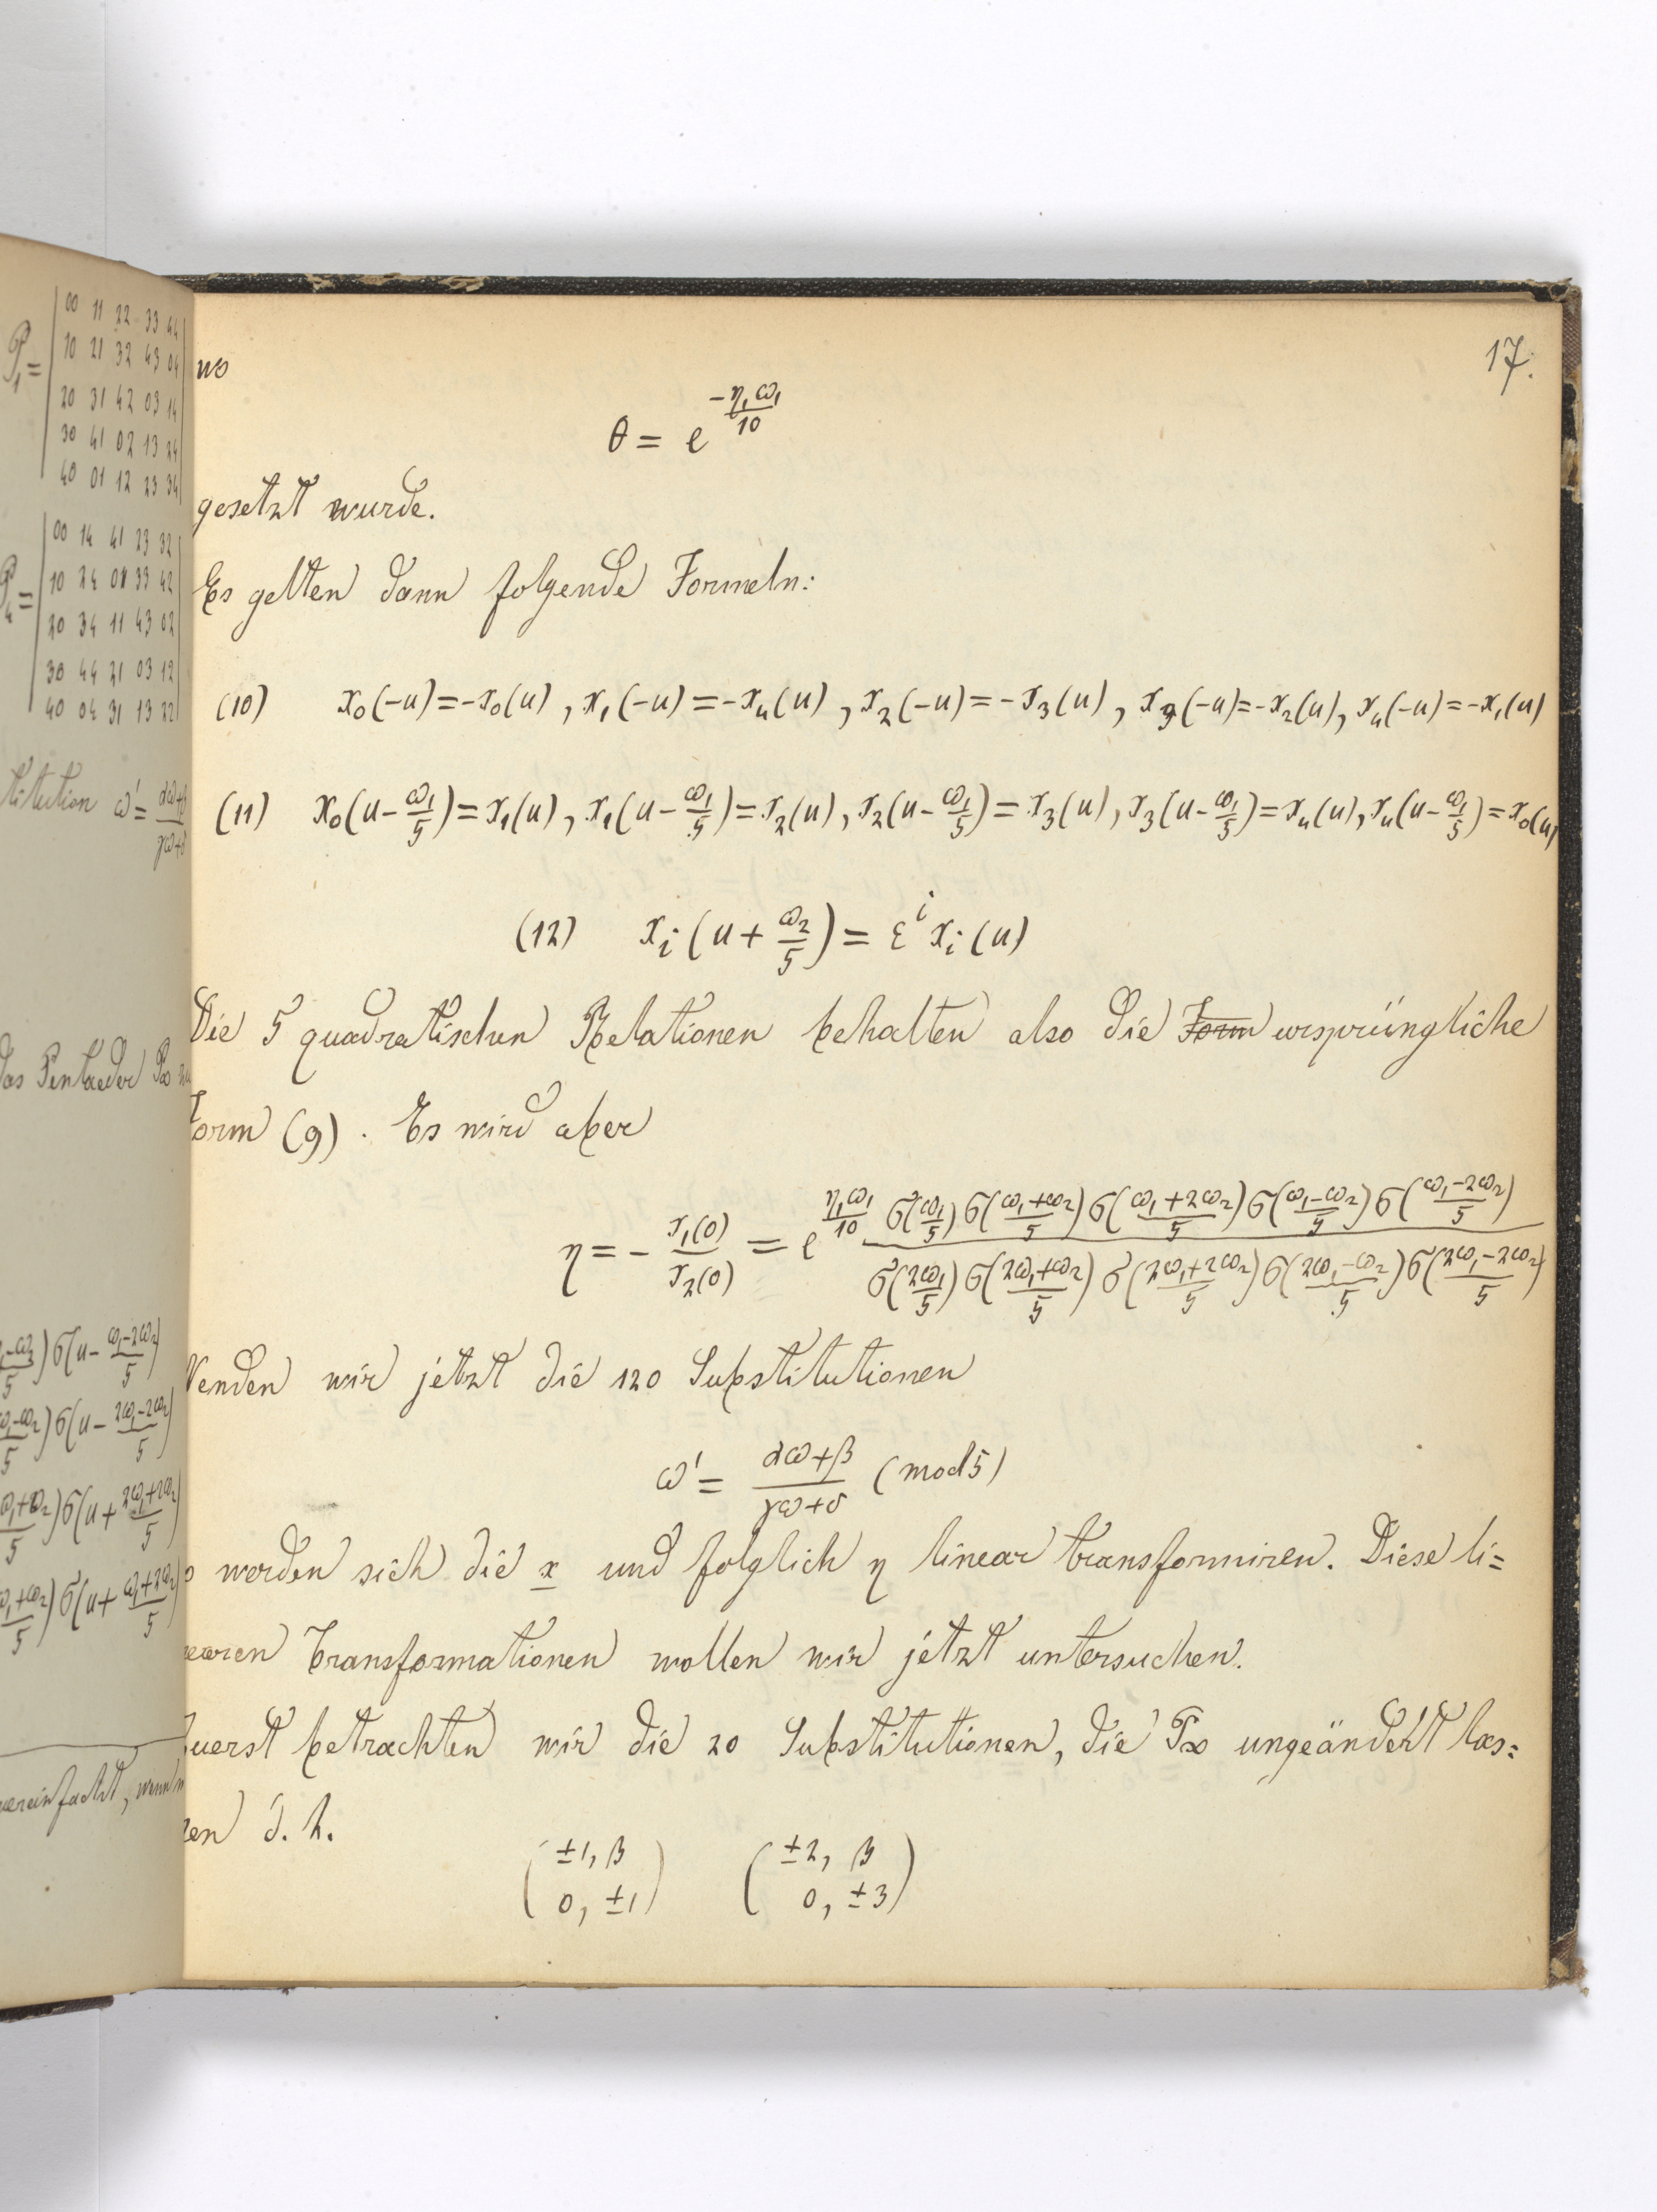 00 11 22 33 44
10 21 32 43 04
20 31 42 03 14
30 41 02 13 24
40 01 12 23 34
00 14 41 23 32
10 24 01 33 42
20 34 11 43 02
30 44 21 03 12
40 04 31 13 22
titution ω' = αω+β / γω+δ
das Pentaeder P∞
ω₁-ω₂/5) σ(u - ω₁-2ω₂/5)
ω₁-ω₂/5) σ(u - 2ω₁-2ω₂/5)
ω₁+ω₂/5) σ(u + 2ω₁+2ω₂/5)
ω₁+ω₂/5) σ(u + ω₁+2ω₂/5)
vereinfacht, wenn
17.
wo
θ = e^{-η₁ω₁/10}
gesetzt wurde.
Es gelten dann folgende Formeln:
(10) x₀(-u)=-x₀(u), x₁(-u)=-x₄(u), x₂(-u)=-x₃(u), x₃(-u)=-x₂(u), x₄(-u)=-x₁(u)
(11) x₀(u-ω₁/5)=x₁(u), x₁(u-ω₁/5)=x₂(u), x₂(u-ω₁/5)=x₃(u), x₃(u-ω₁/5)=x₄(u), x₄(u-ω₁/5)=x₀(u)
(12) xᵢ(u+ω₂/5)=εⁱxᵢ(u)
Die 5 quadratischen Relationen behalten also die Form ursprüngliche
Form (9). Es wird aber
η = - x₁(0)/x₂(0) = e^{η₁ω₁/10} σ(ω₁/5)σ(ω₁+ω₂/5)σ(ω₁+2ω₂/5)σ(ω₁-ω₂/5)σ(ω₁-2ω₂/5) / σ(2ω₁/5)σ(2ω₁+ω₂/5)σ(2ω₁+2ω₂/5)σ(2ω₁-ω₂/5)σ(2ω₁-2ω₂/5)
Wenden wir jetzt die 120 Substitutionen
ω' = αω+β / γω+δ (mod 5)
so werden sich die x und folglich η linear transformiren. Diese li=
nearen Transformationen wollen wir jetzt untersuchen.
Zuerst betrachten wir die 20 Substitutionen, die P∞ ungeändert las=
sen d. h.
(±1, β (±2, β
0, ±1) 0, ±3)